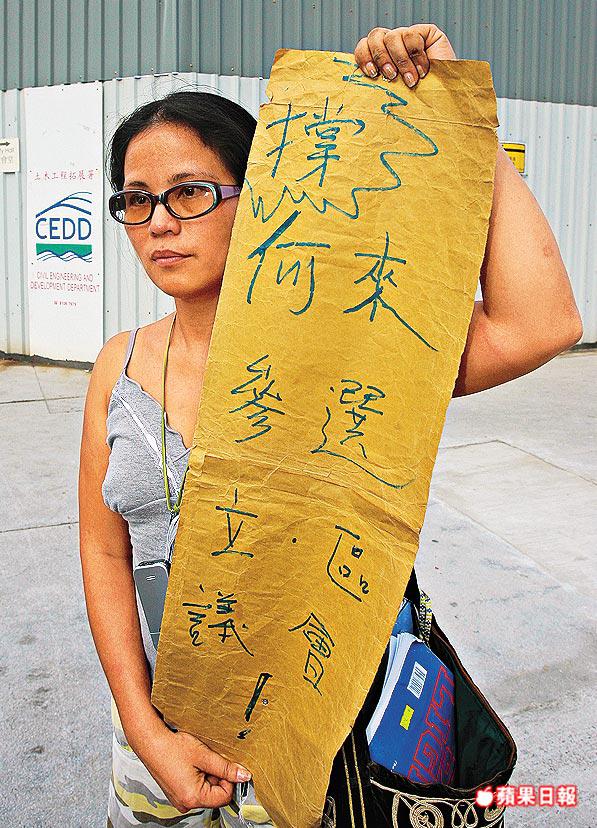 撐
何來
參選
立.區
議會!
土木工程拓展署
CEDD
CIVIL ENGINEERING AND
DEVELOPMENT DEPARTMENT
蘋果日報